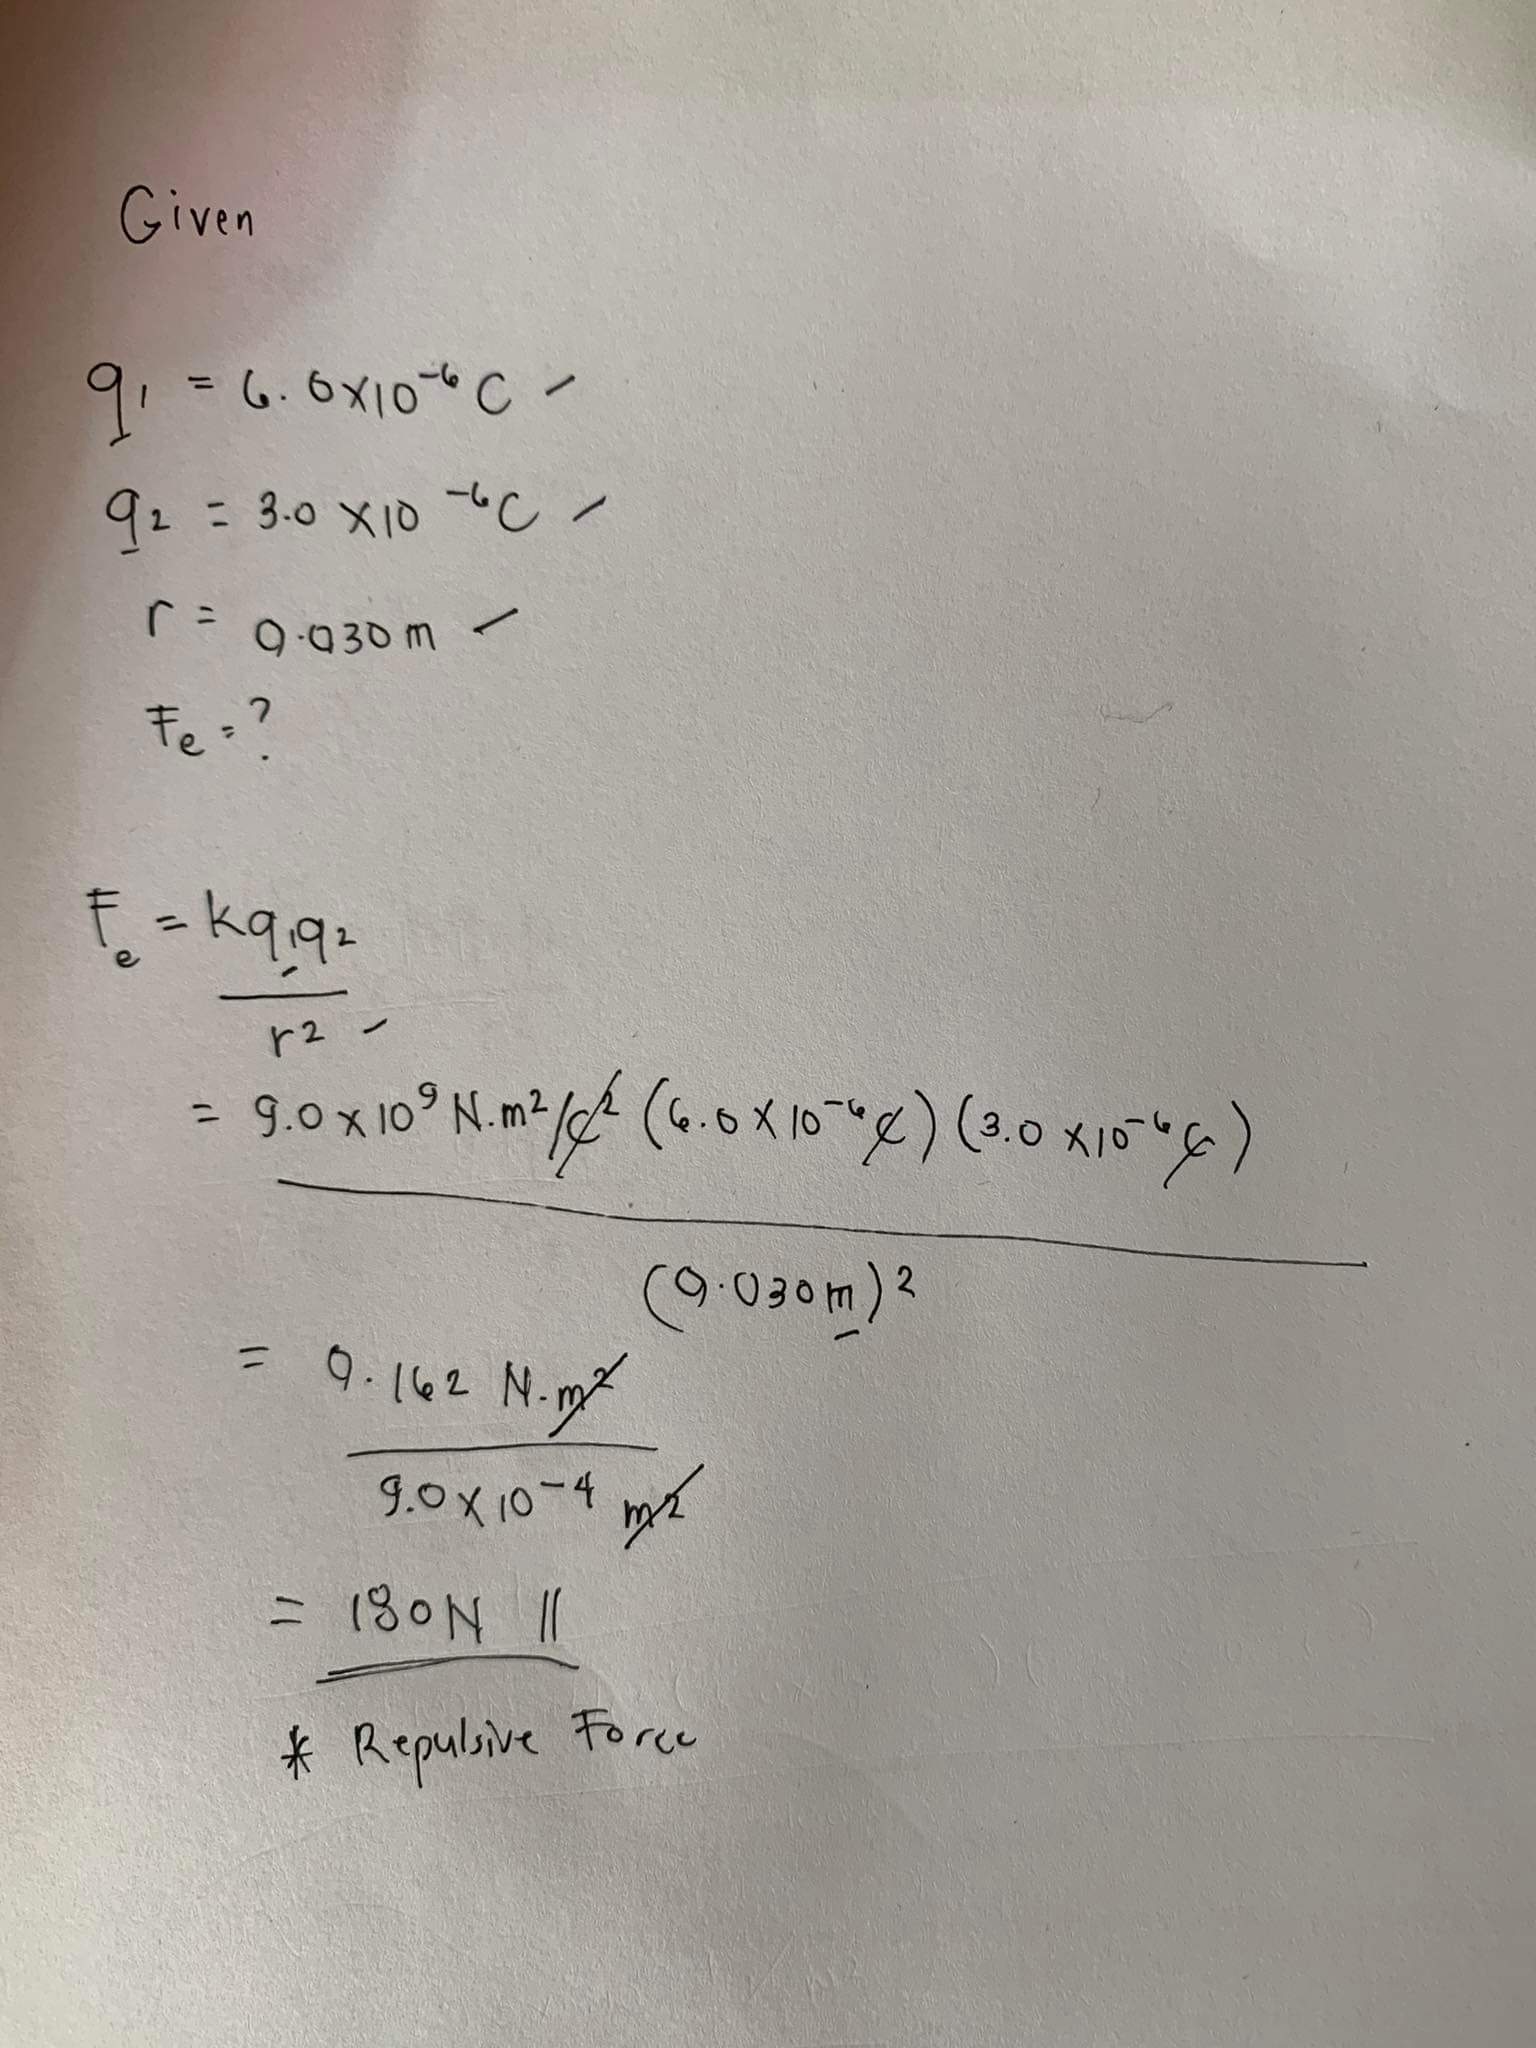 Given
q₁ = 6.0x10⁻⁶ C
q₂ = 3.0 x10⁻⁶C
r = 0.030m
Fe = ?
Fe = kq₁q₂
r²
= 9.0 x 10⁹ N.m²/C² (6.0 x 10⁻⁶C) (3.0 x10⁻⁶C)
(0.030m)²
= 0.162 N.m²
9.0 x 10⁻⁴ m²
= 180N //
* Repulsive Force